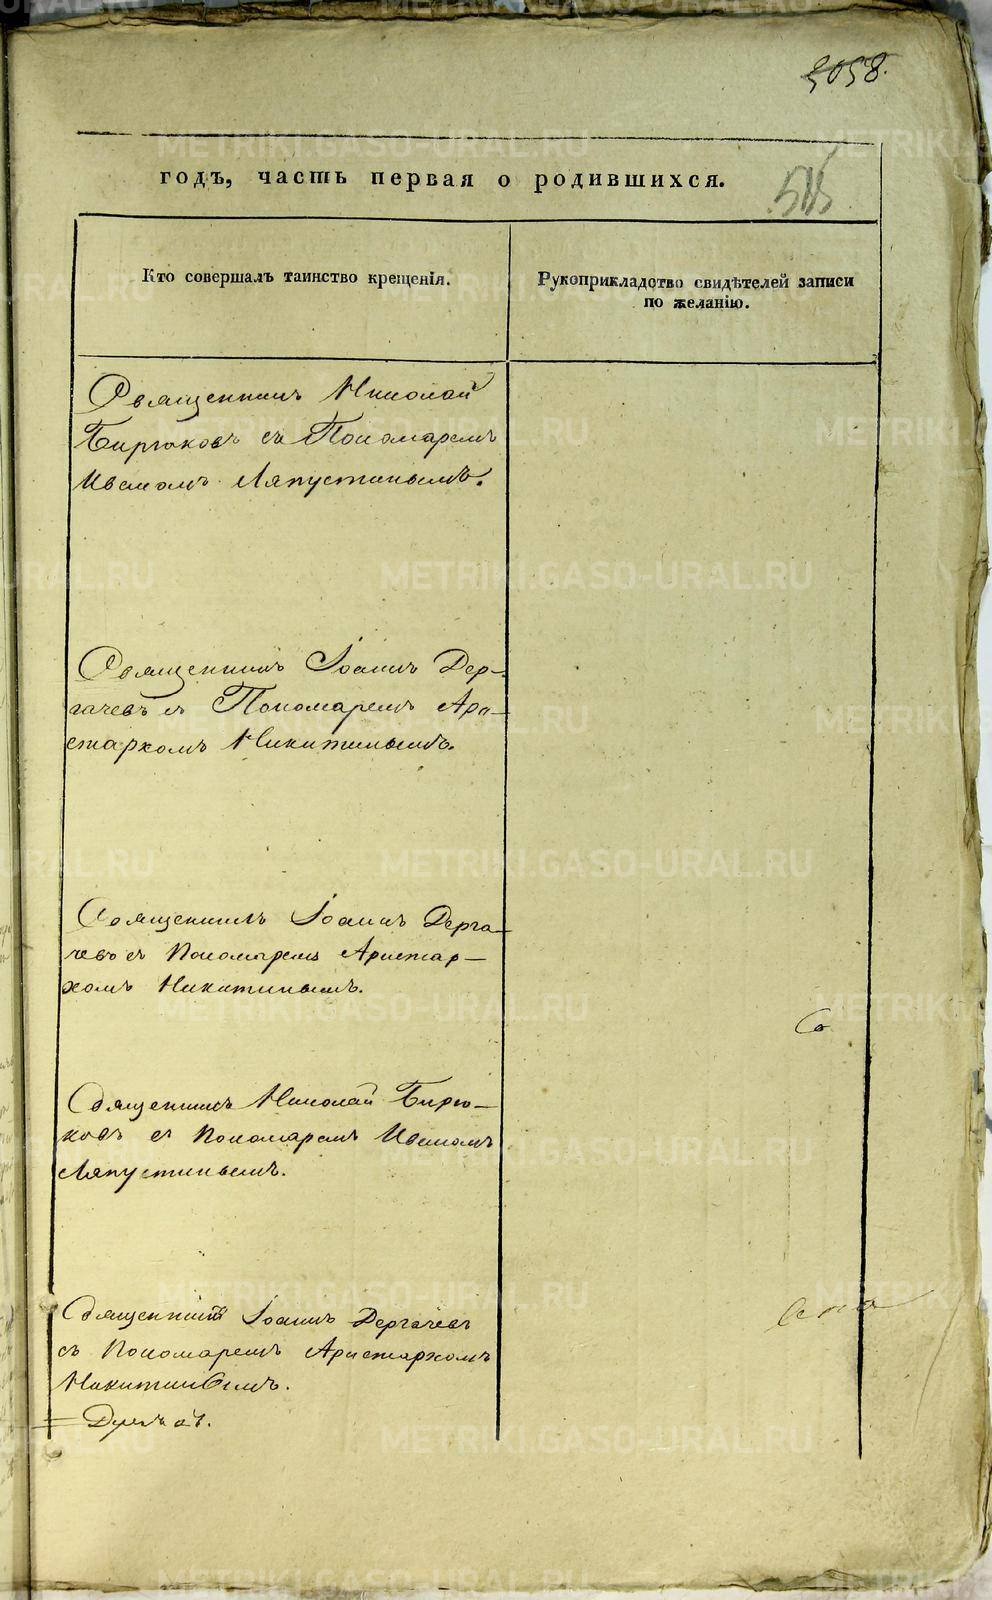 5058.
годъ, часть первая о родившихся.
Кто совершалъ таинство крещенія.
Рукоприкладство свидѣтелей записи
по желанію.
Священникъ Николай
Бирюковъ съ Пономаремъ
Иваномъ Ляпустинымъ.
Священникъ Іоаннъ Дер-
гачевъ съ Пономаремъ Ари-
стархомъ Никитинымъ.
Священникъ Іоаннъ Дерга-
чевъ съ Пономаремъ Аристар-
хомъ Никитинымъ.
Священникъ Николай Бирю-
ковъ съ Пономаремъ Иваномъ
Ляпустинымъ.
Священникъ Іоаннъ Дергачевъ
съ Пономаремъ Аристархомъ
Никитинымъ.
METRIKI.GASO-URAL.RU